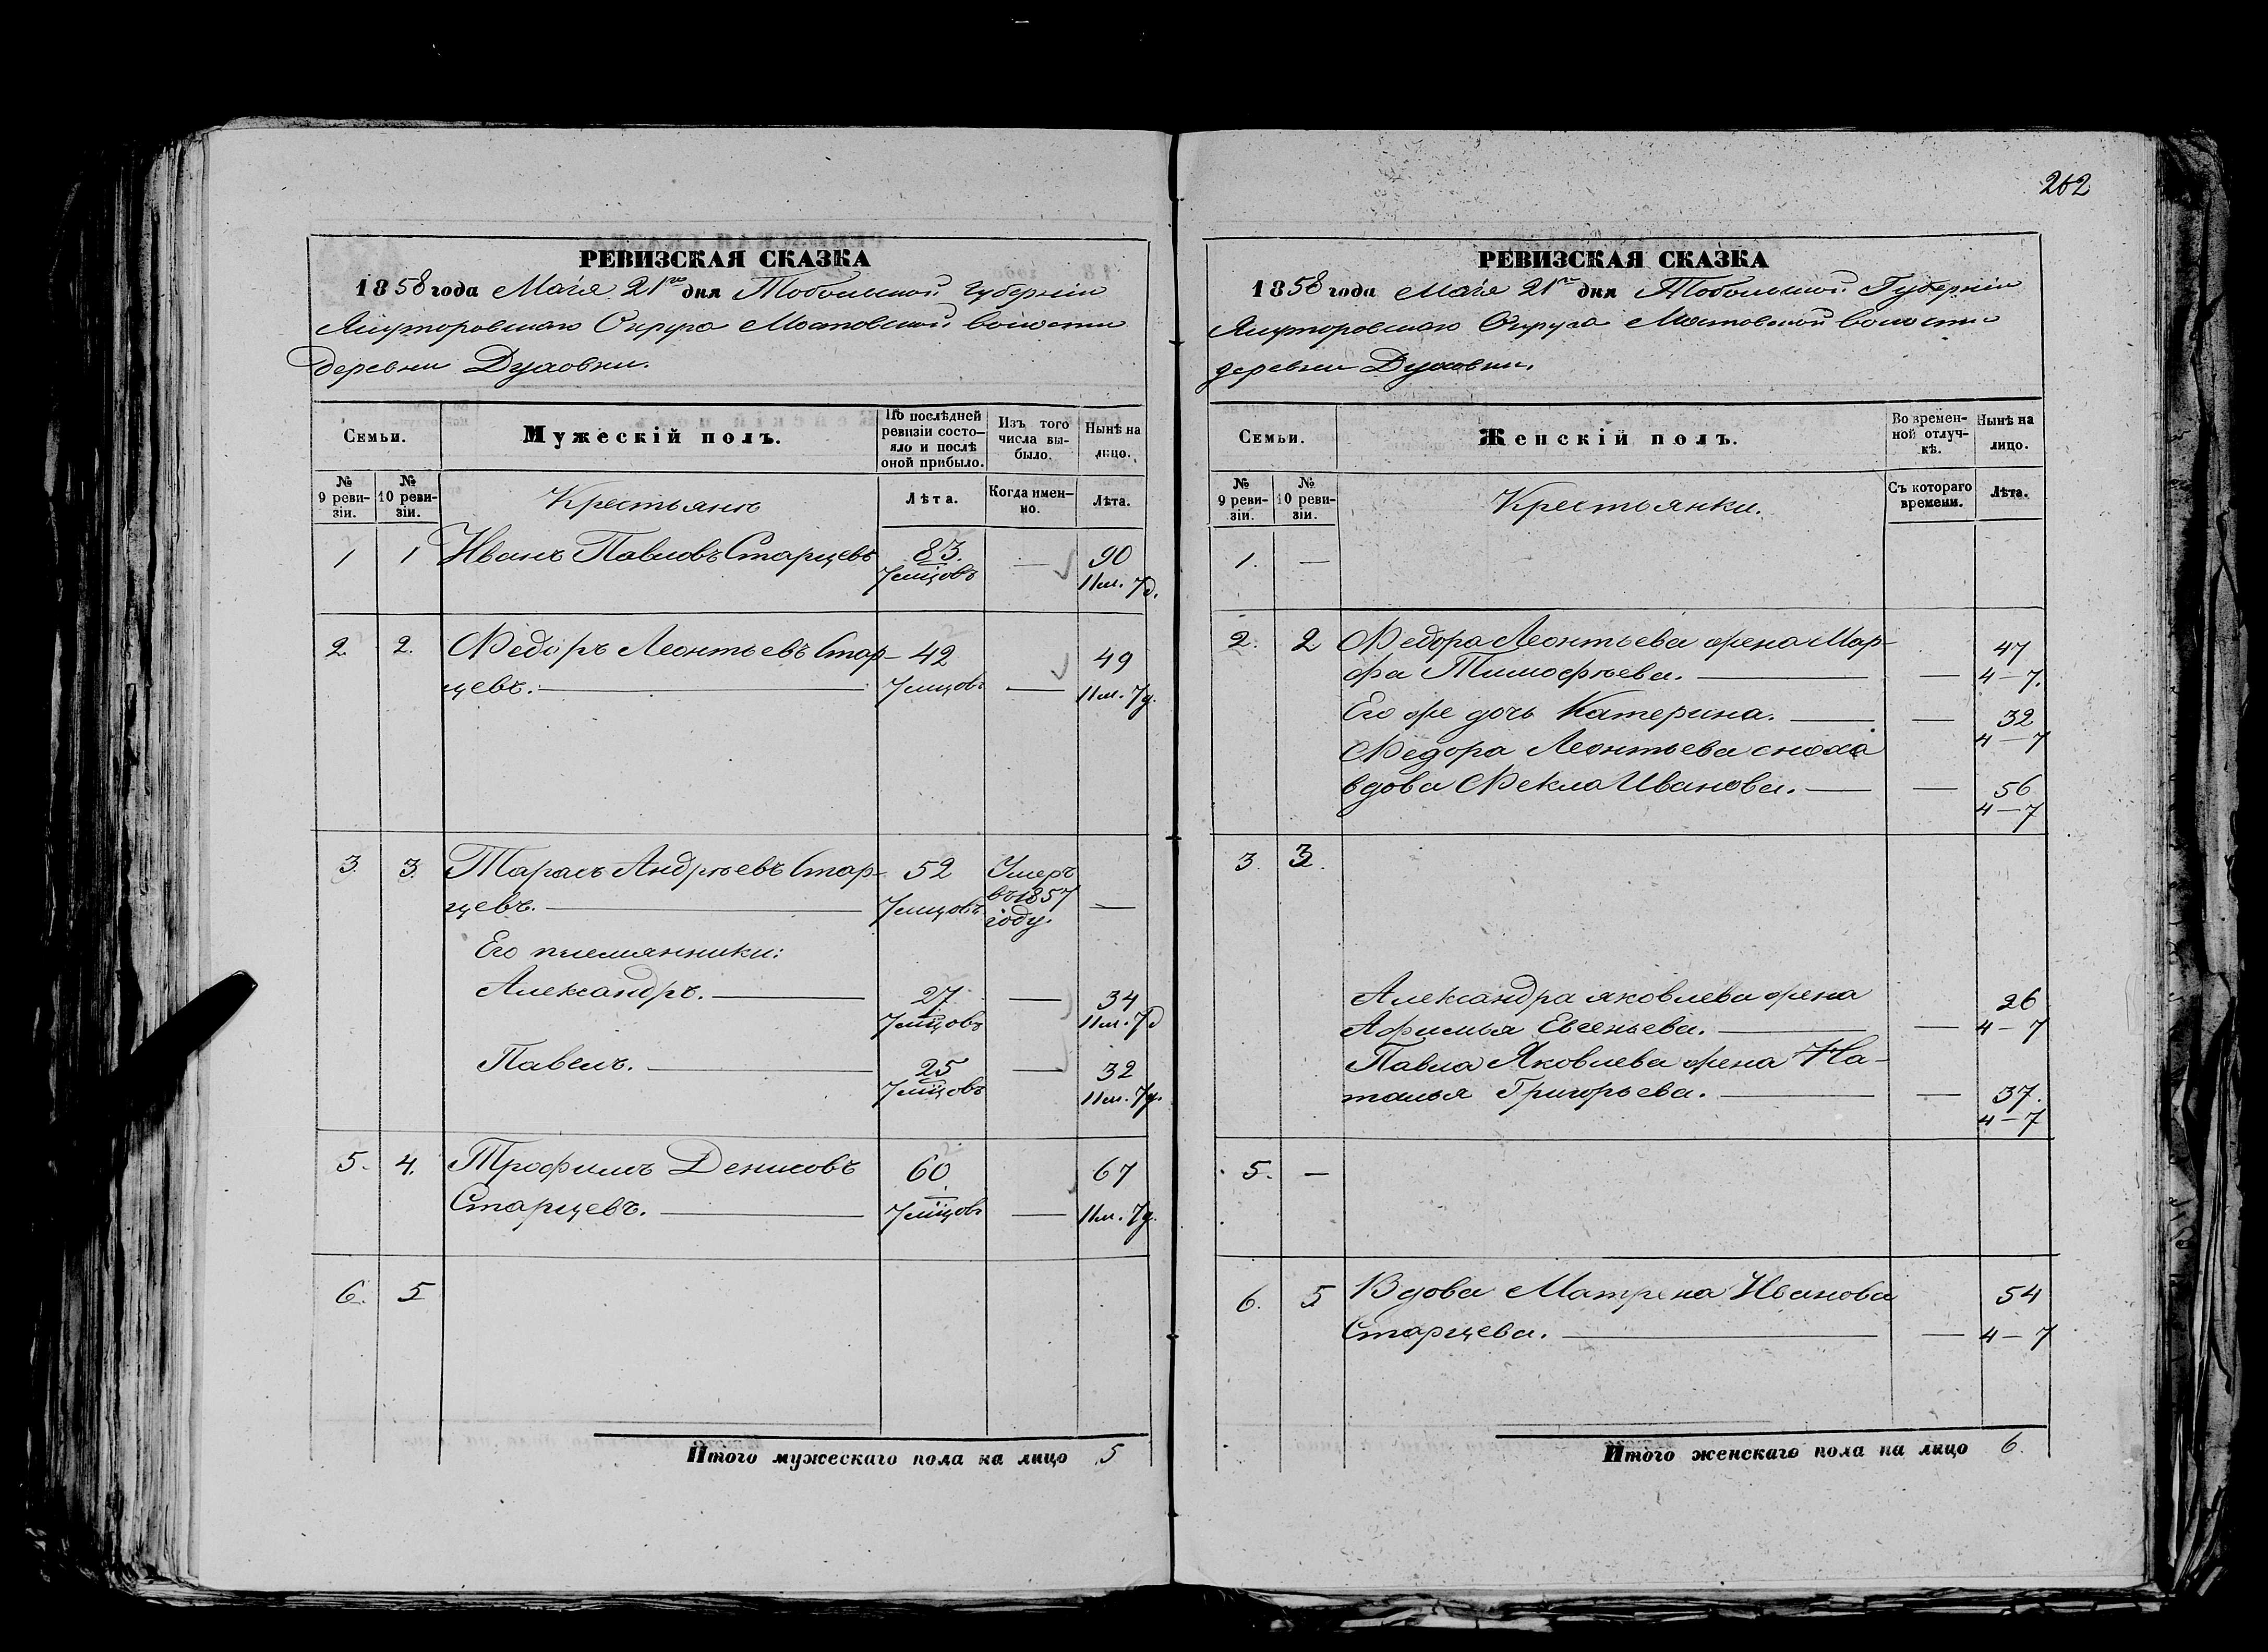 262
РЕВИЗСКАЯ СКАЗКА
1858 года Маія 21го дня Тобольской губерніи
Ялуторовскаго Округа Мостовской волости
деревни Духовки.
Семьи.
Мужескій полъ.
По послѣдней ревизіи состояло и послѣ оной прибыло.
Изъ того числа выбыло.
Нынѣ на лицо.
№ 9 ревизіи.
№ 10 ревизіи.
Крестьянъ
Лѣта.
Когда именно.
Лѣта.
1 1 Иванъ Павловъ Старцевъ 83. — 90
7 мцовъ 11 м. 7 д.
2. 2. Федоръ Леонтьевъ Стар- 42 49
цевъ. 7 мцовъ — 11 м. 7 д.
3. 3. Тарасъ Андрѣевъ Стар- 52 Умеръ
въ 1857
цевъ. 7 мцовъ —
году.
Его племянники:
Александръ. 27 — 34
7 мцовъ 11 м. 7 д
Павелъ. 25 — 32
7 мцовъ 11 м. 7 д.
5. 4. Трофимъ Денисовъ 60 67
Старцевъ. 7 мцовъ — 11 м. 7 д.
6. 5
Итого мужескаго пола на лицо 5
РЕВИЗСКАЯ СКАЗКА
1858 года Маія 21го дня Тобольской Губерніи
Ялуторовскаго Округа Мостовской волости
деревни Духовки.
Семьи.
Женскій полъ.
Во временной отлучкѣ.
Нынѣ на лицо.
№ 9 ревизіи.
№ 10 ревизіи.
Крестьянки.
Съ котораго времени.
Лѣта.
1. —
2. 2 Федора Леонтьева жена Мар- 47
фа Тимофѣева. — 4 – 7.
Его же дочь Катерина. — 32
4 – 7
Федора Леонтьева сноха
вдова Фекла Иванова. — 56
4 – 7
3 3.
Александра Яковлева жена 26
Афимья Евсеньева. — 4 – 7
Павла Яковлева жена На-
талья Григорьева. — 37.
4 – 7
5. —
6. 5 Вдова Матрена Иванова 54
Старцева. — 4 – 7
Итого женскаго пола на лицо 6.